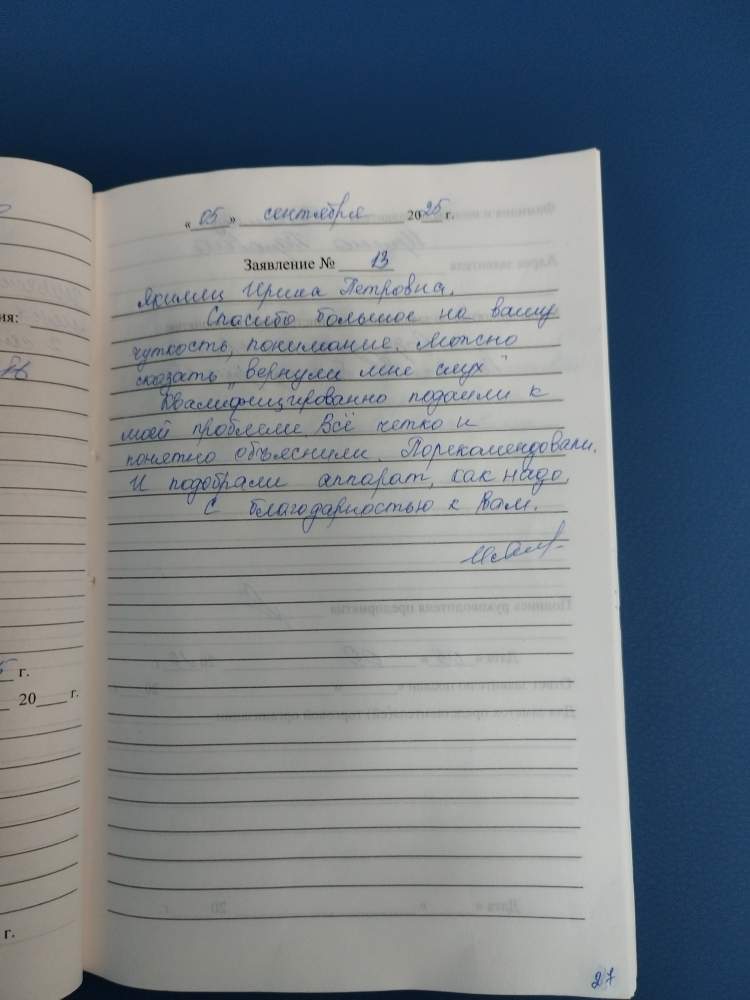 « 05 » сентября 2025 г.
Заявление № 13
Ирина Петровна.
Спасибо большое на вашу
чуткость, понимание. Можно
сказать „вернули мне слух"
Квалифицированно подошли к
моей проблеме. Всё четко и
понятно объяснили. Порекомендовали.
И подобрали аппарат, как надо.
С благодарностью к Вам.
27
ия:
г.
20 г.
г.